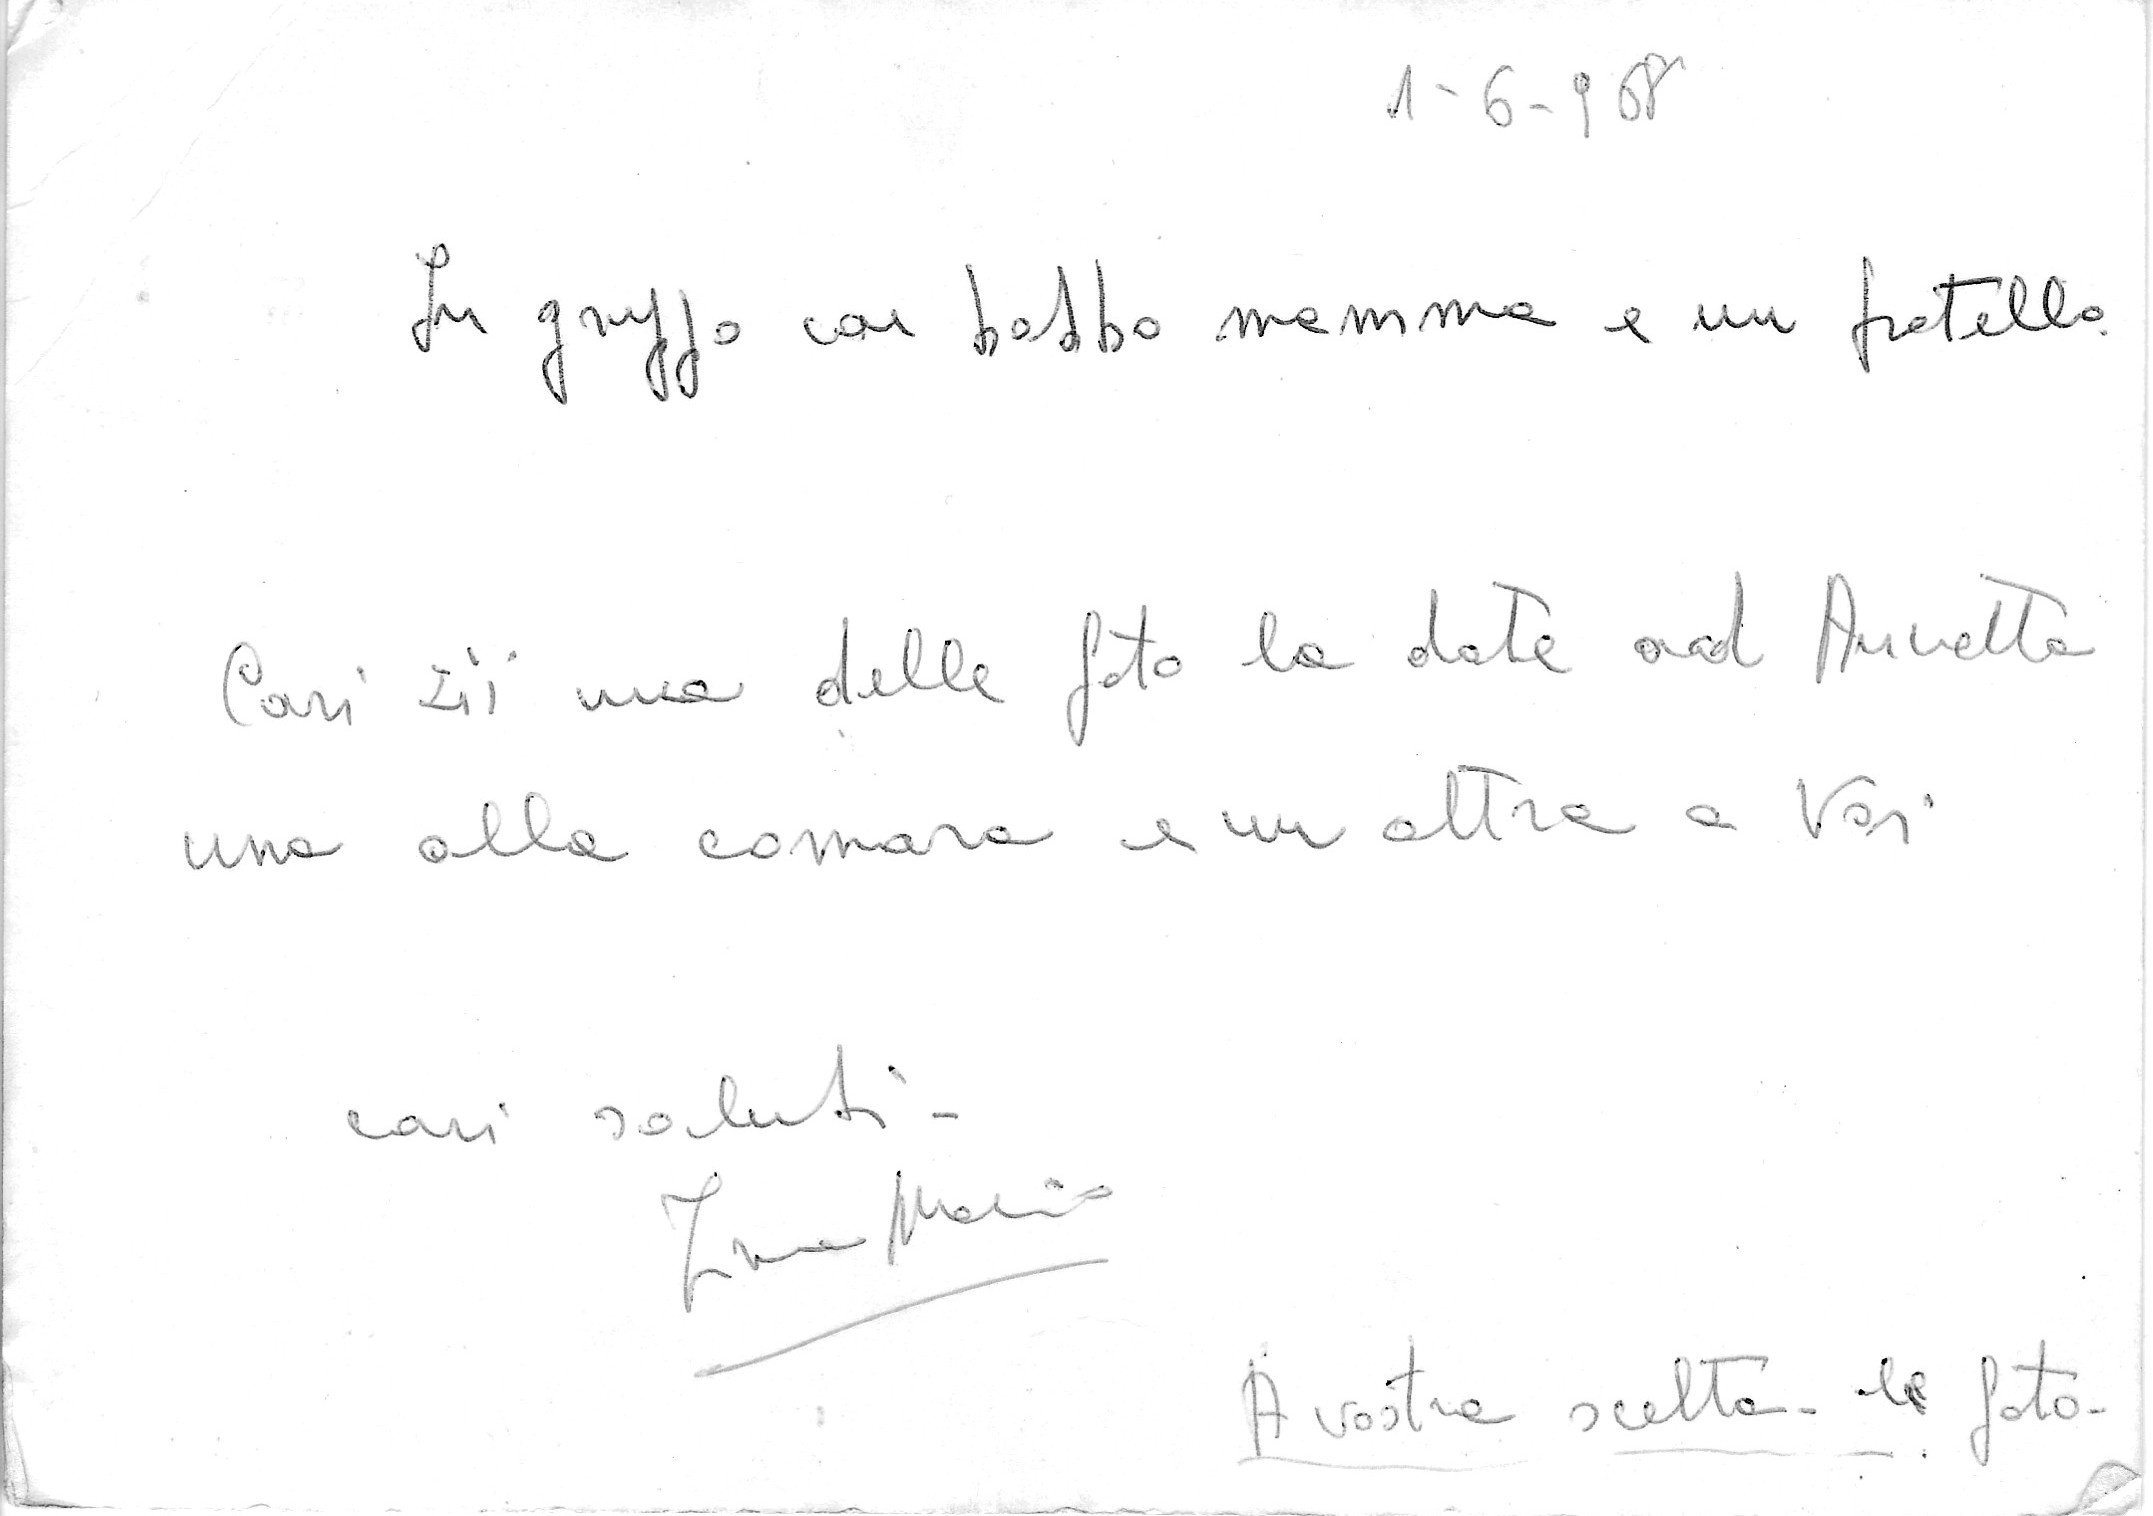 1-6-968
In gruppo con babbo mamma e un fratello.
Cari zii una delle foto la date ad Annetta
una alla comara e un altra a Voi
cari saluti -
Maria
A vostra scelta - le foto -